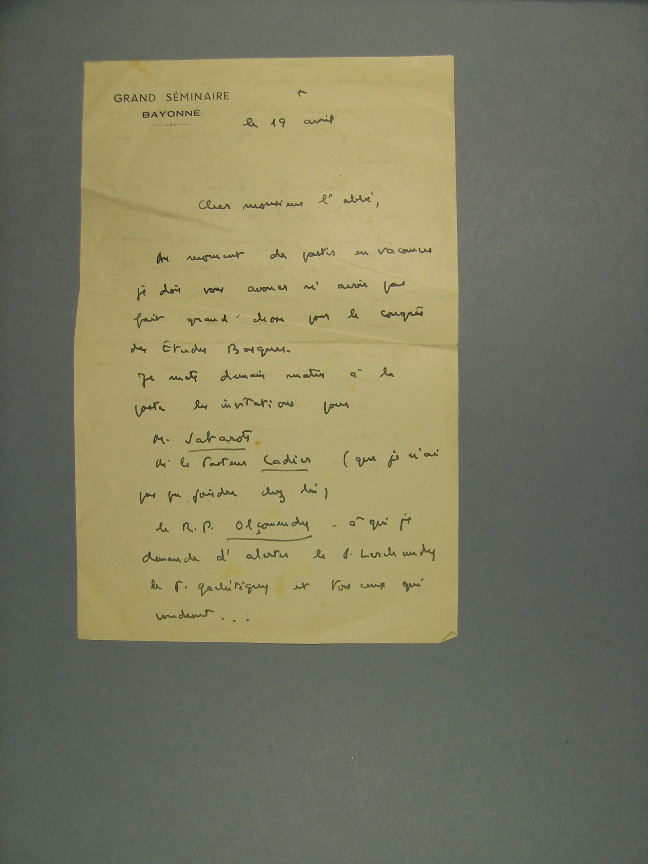 GRAND SÉMINAIRE
BAYONNE
le 19 avril
Cher monsieur l'abbé,
Au moment de partir en vacances
je dois vous avouer n'avoir pas
fait grand'chose pour le congrès
des Études Basques.
Je mets demain matin à la
poste les invitations pour
M. Sabarots
M. le Pasteur Cadier (que je n'ai
pas pu joindre chez lui)
le R.P. Olçomendy - à qui je
demande d'alerter le P. Lerchundy
le P. et tous ceux qui
voudront...